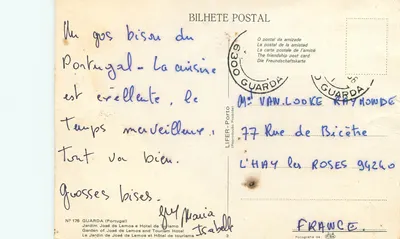 BILHETE POSTAL
Un gos bisou du
Portugal - La cuisine
est exellente, le
Temps merveilleux,
Tout va bien.
Grosses bises.
Guy Maria
Isabelle
Nº 176 GUARDA (Portugal)
Jardim José de Lemos e Hotel de turismo
Garden of José de Lemos and Tourism Hotel
Le Jardin de José de Lemos et Hôtel de tourisme
LIFER-Porto
O postal da amizade
La postal de la amistad
La carte postale de l'amitié
The friendship post card
Die Freundschaftskarte
6300
GUARDA
GUARDA
Me VAN.LOOKE RAYMONDE
77 Rue de Bicètre
L'HAY les ROSES 94240
FRANCE.